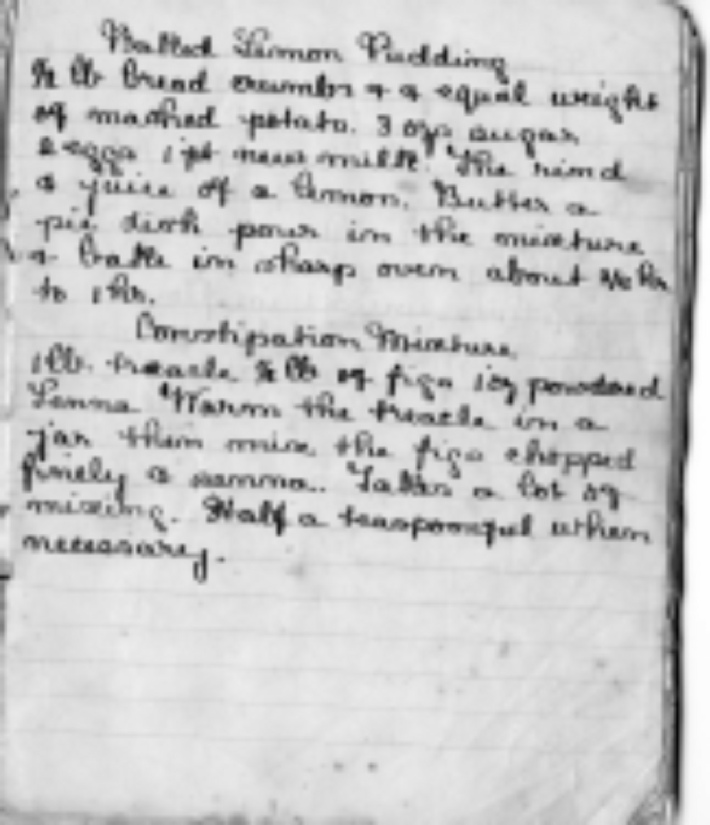 Baked Lemon Pudding
lb bread crumbs & a equal weight
of mashed potato. 3 ozs sugar
2 eggs 1 pt new milk. The rind
& juice of a lemon. Butter a
pie dish pour in the mixture
& bake in sharp oven about hr
to 1 hr.
Constipation Mixture
1 lb. treacle lb of figs 1 oz powdered
Senna Warm the treacle in a
jar then mix the figs chopped
finely & senna.. Takes a lot of
mixing. Half a teaspoonful when
necessary.